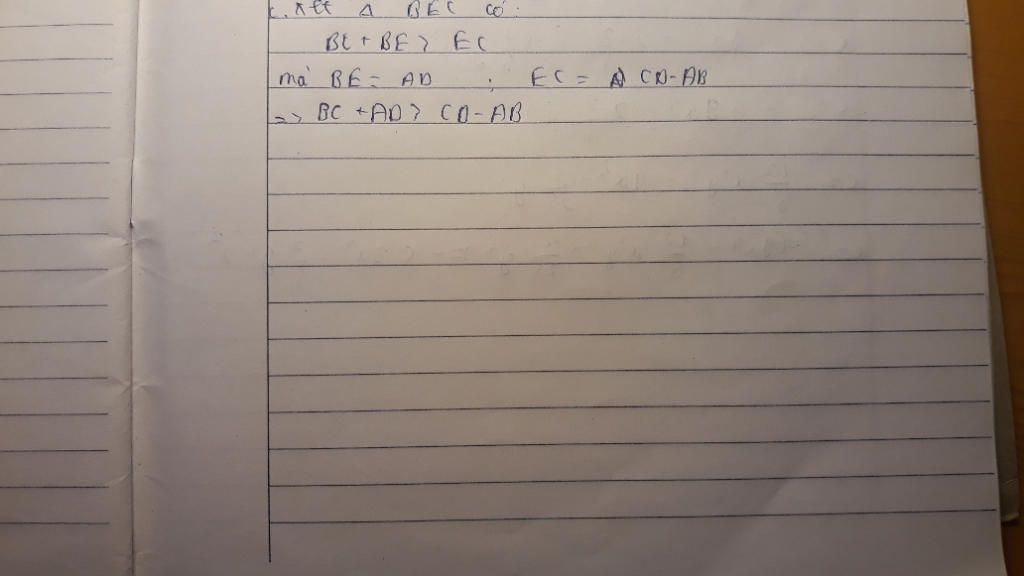 c. Xét Δ BEC có:
BC + BE > EC
mà BE = AD ; EC = CD - AB
=> BC + AD > CD - AB